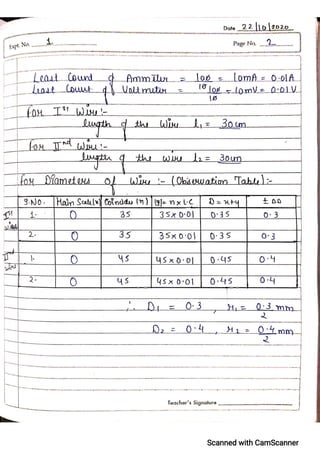 Date 22/10/2020
Expt. No. 1 Page No. 2
Least Count of Ammeter = 100 = 10mA = 0.01A
10
Least Count of Voltmeter = 100 = 10mV = 0.01V
10
For Ist Wire :-
length of the Wire l₁ = 30cm
For IInd Wire :-
length of the wire l₂ = 30cm
for Diameters of Wire :- (Observation Table) :-
S.NO. Main Scale(x) Coincides (n) (y)= n x L.C D = x+y ± 0.0
Ist wire 1. 0 35 35x0.01 0.35 0.3
2. 0 35 35x0.01 0.35 0.3
IInd wire 1. 0 45 45x0.01 0.45 0.4
2. 0 45 45x0.01 0.45 0.4
∴ D₁ = 0.3, r₁ = 0.3 mm
2
D₂ = 0.4, r₂ = 0.4 mm
2
Teacher's Signature
Scanned with CamScanner